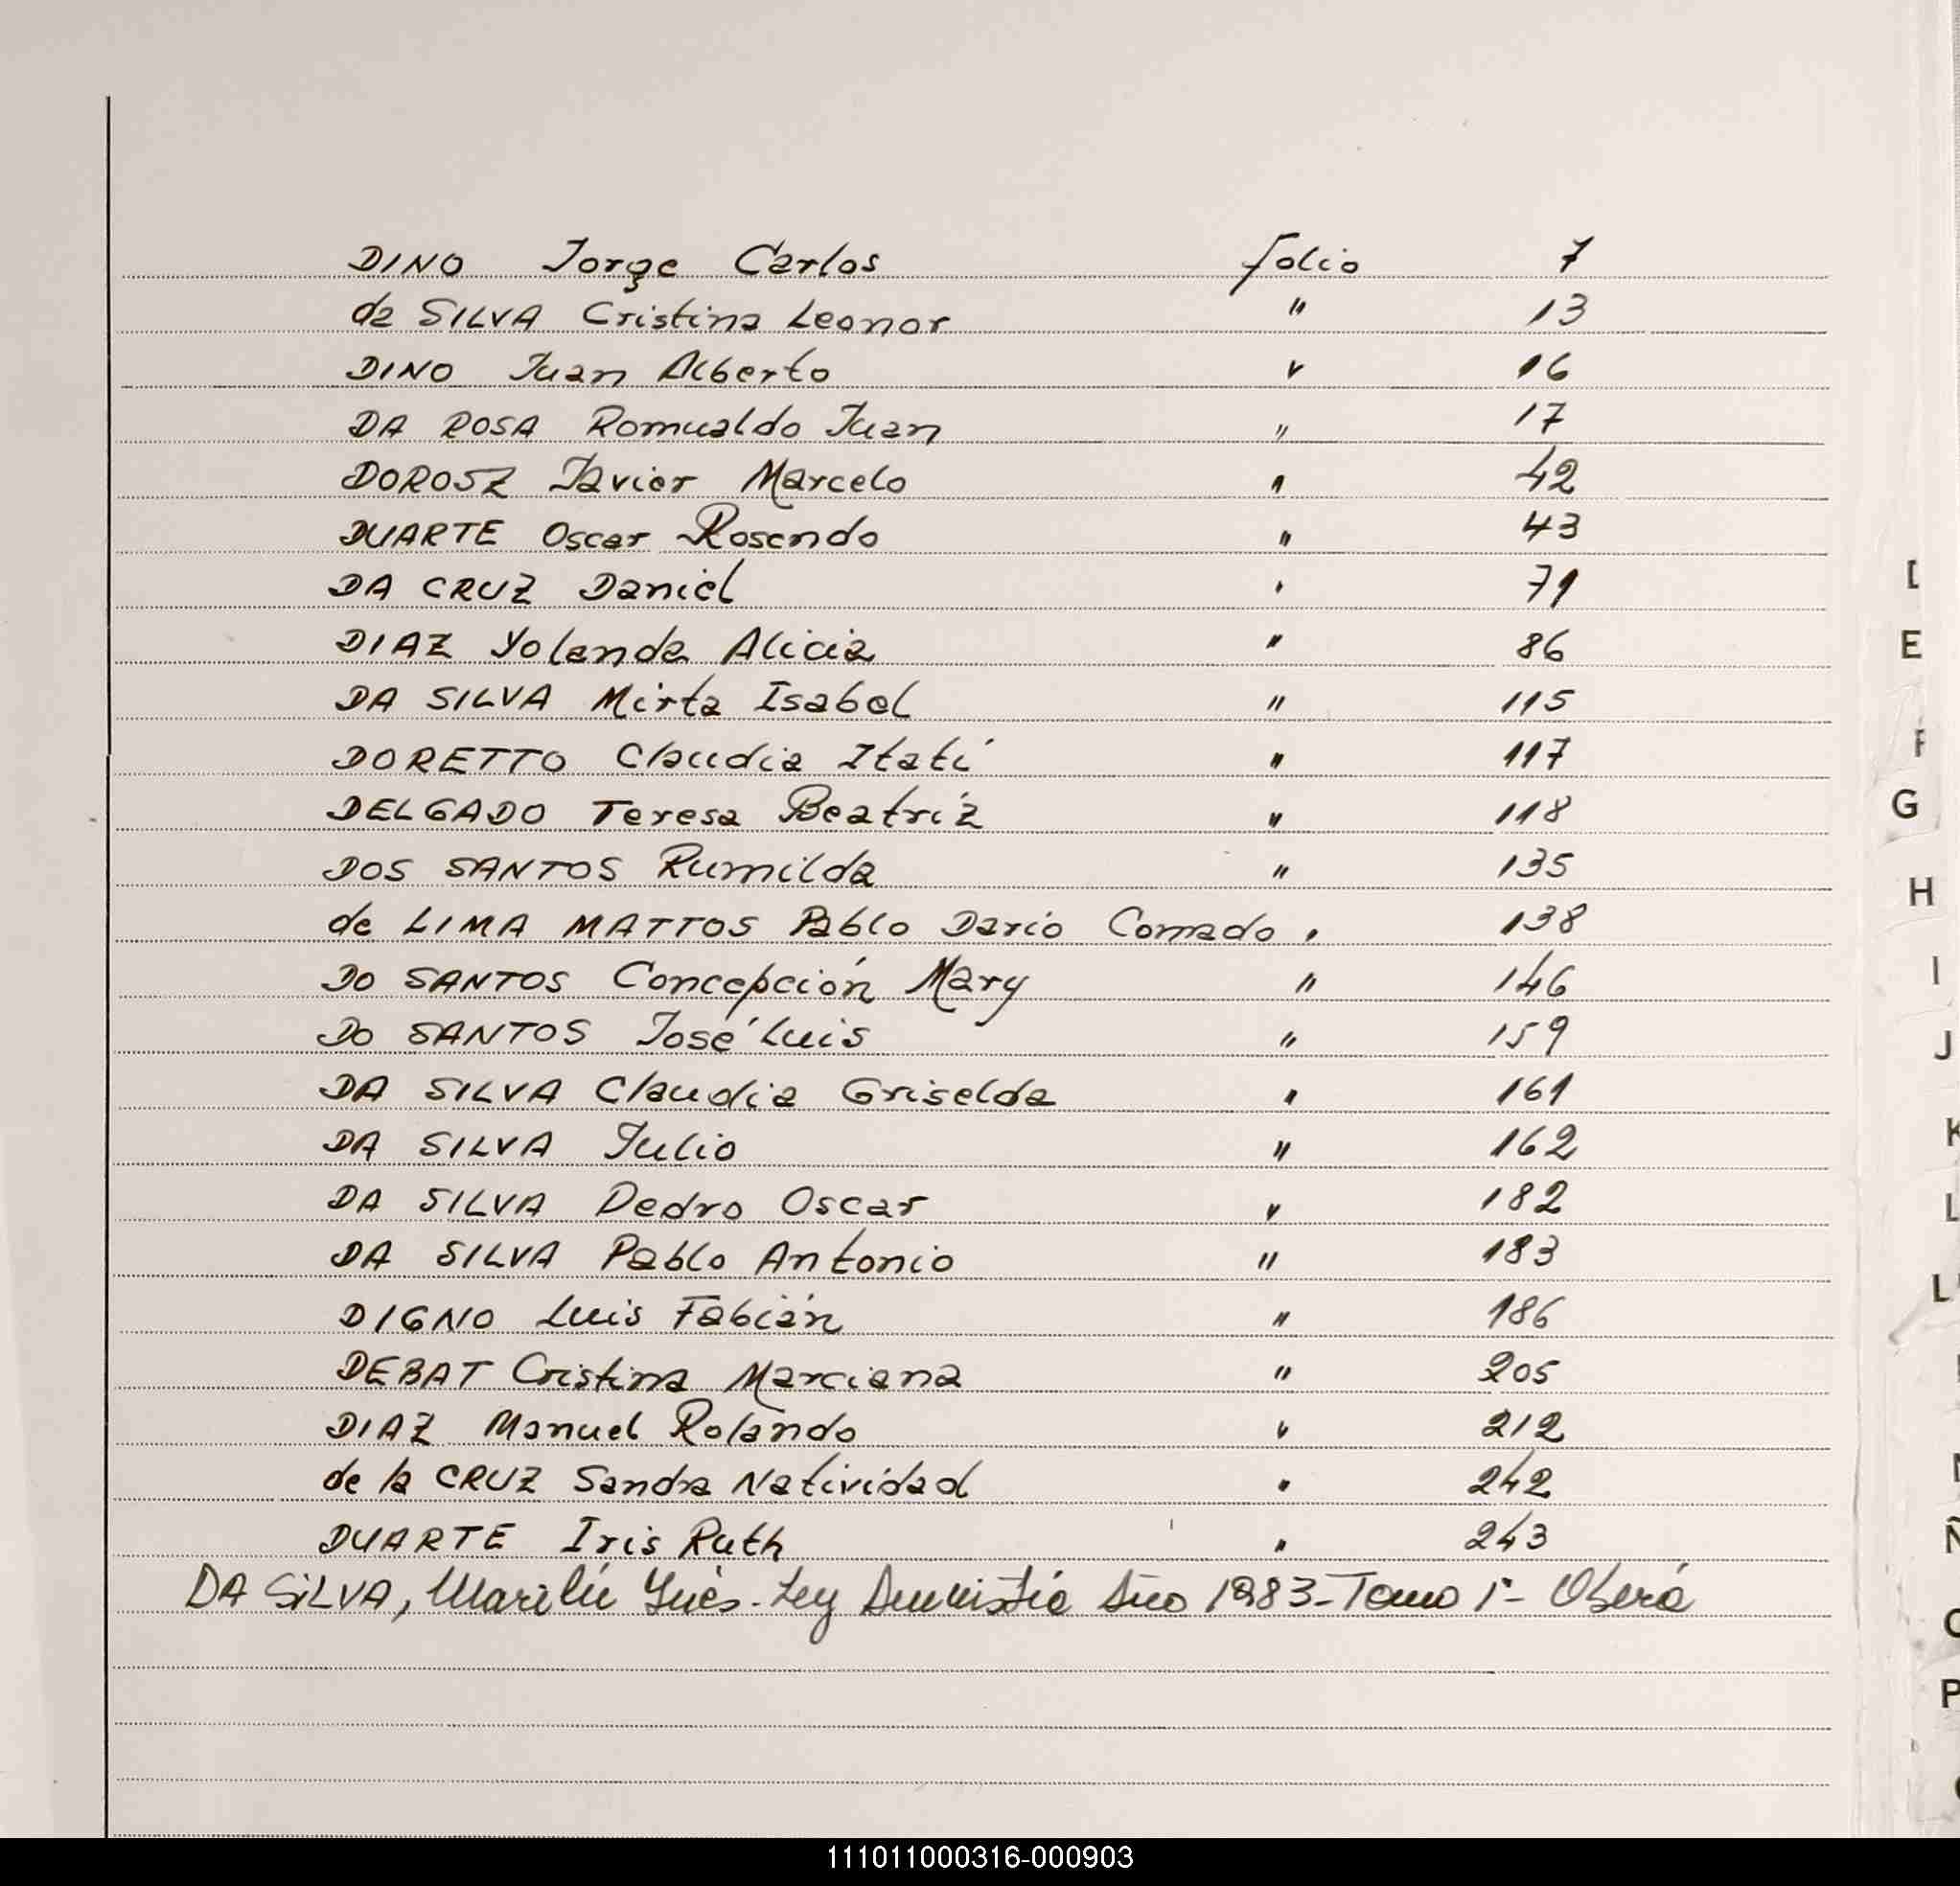 DINO Jorge Carlos folio 7
de SILVA Cristina Leonor " 13
DINO Juan Alberto " 16
DA ROSA Romualdo Juan " 17
DOROSZ Javier Marcelo " 42
DUARTE Oscar Rosendo " 43
DA CRUZ Daniel " 71
DIAZ Yolanda Alicia " 86
DA SILVA Mirta Isabel " 115
DORETTO Claudia Itatí " 117
DELGADO Teresa Beatriz " 118
DOS SANTOS Rumilda " 135
de LIMA MATTOS Pablo Darío Conrado " 138
DO SANTOS Concepción Mary " 146
DO SANTOS José Luis " 159
DA SILVA Claudia Griselda " 161
DA SILVA Julio " 162
DA SILVA Pedro Oscar " 182
DA SILVA Pablo Antonio " 183
DIGNO Luis Fabián " 186
DEBAT Cristina Marciana " 205
DIAZ Manuel Rolando " 212
de la CRUZ Sandra Natividad " 242
DUARTE Iris Ruth " 243
DA SILVA, Marilú Inés - Ley Amnistía Año 1983 - Tomo 1° - Oberá
E
F
G
H
I
J
K
L
Ñ
P
111011000316-000903